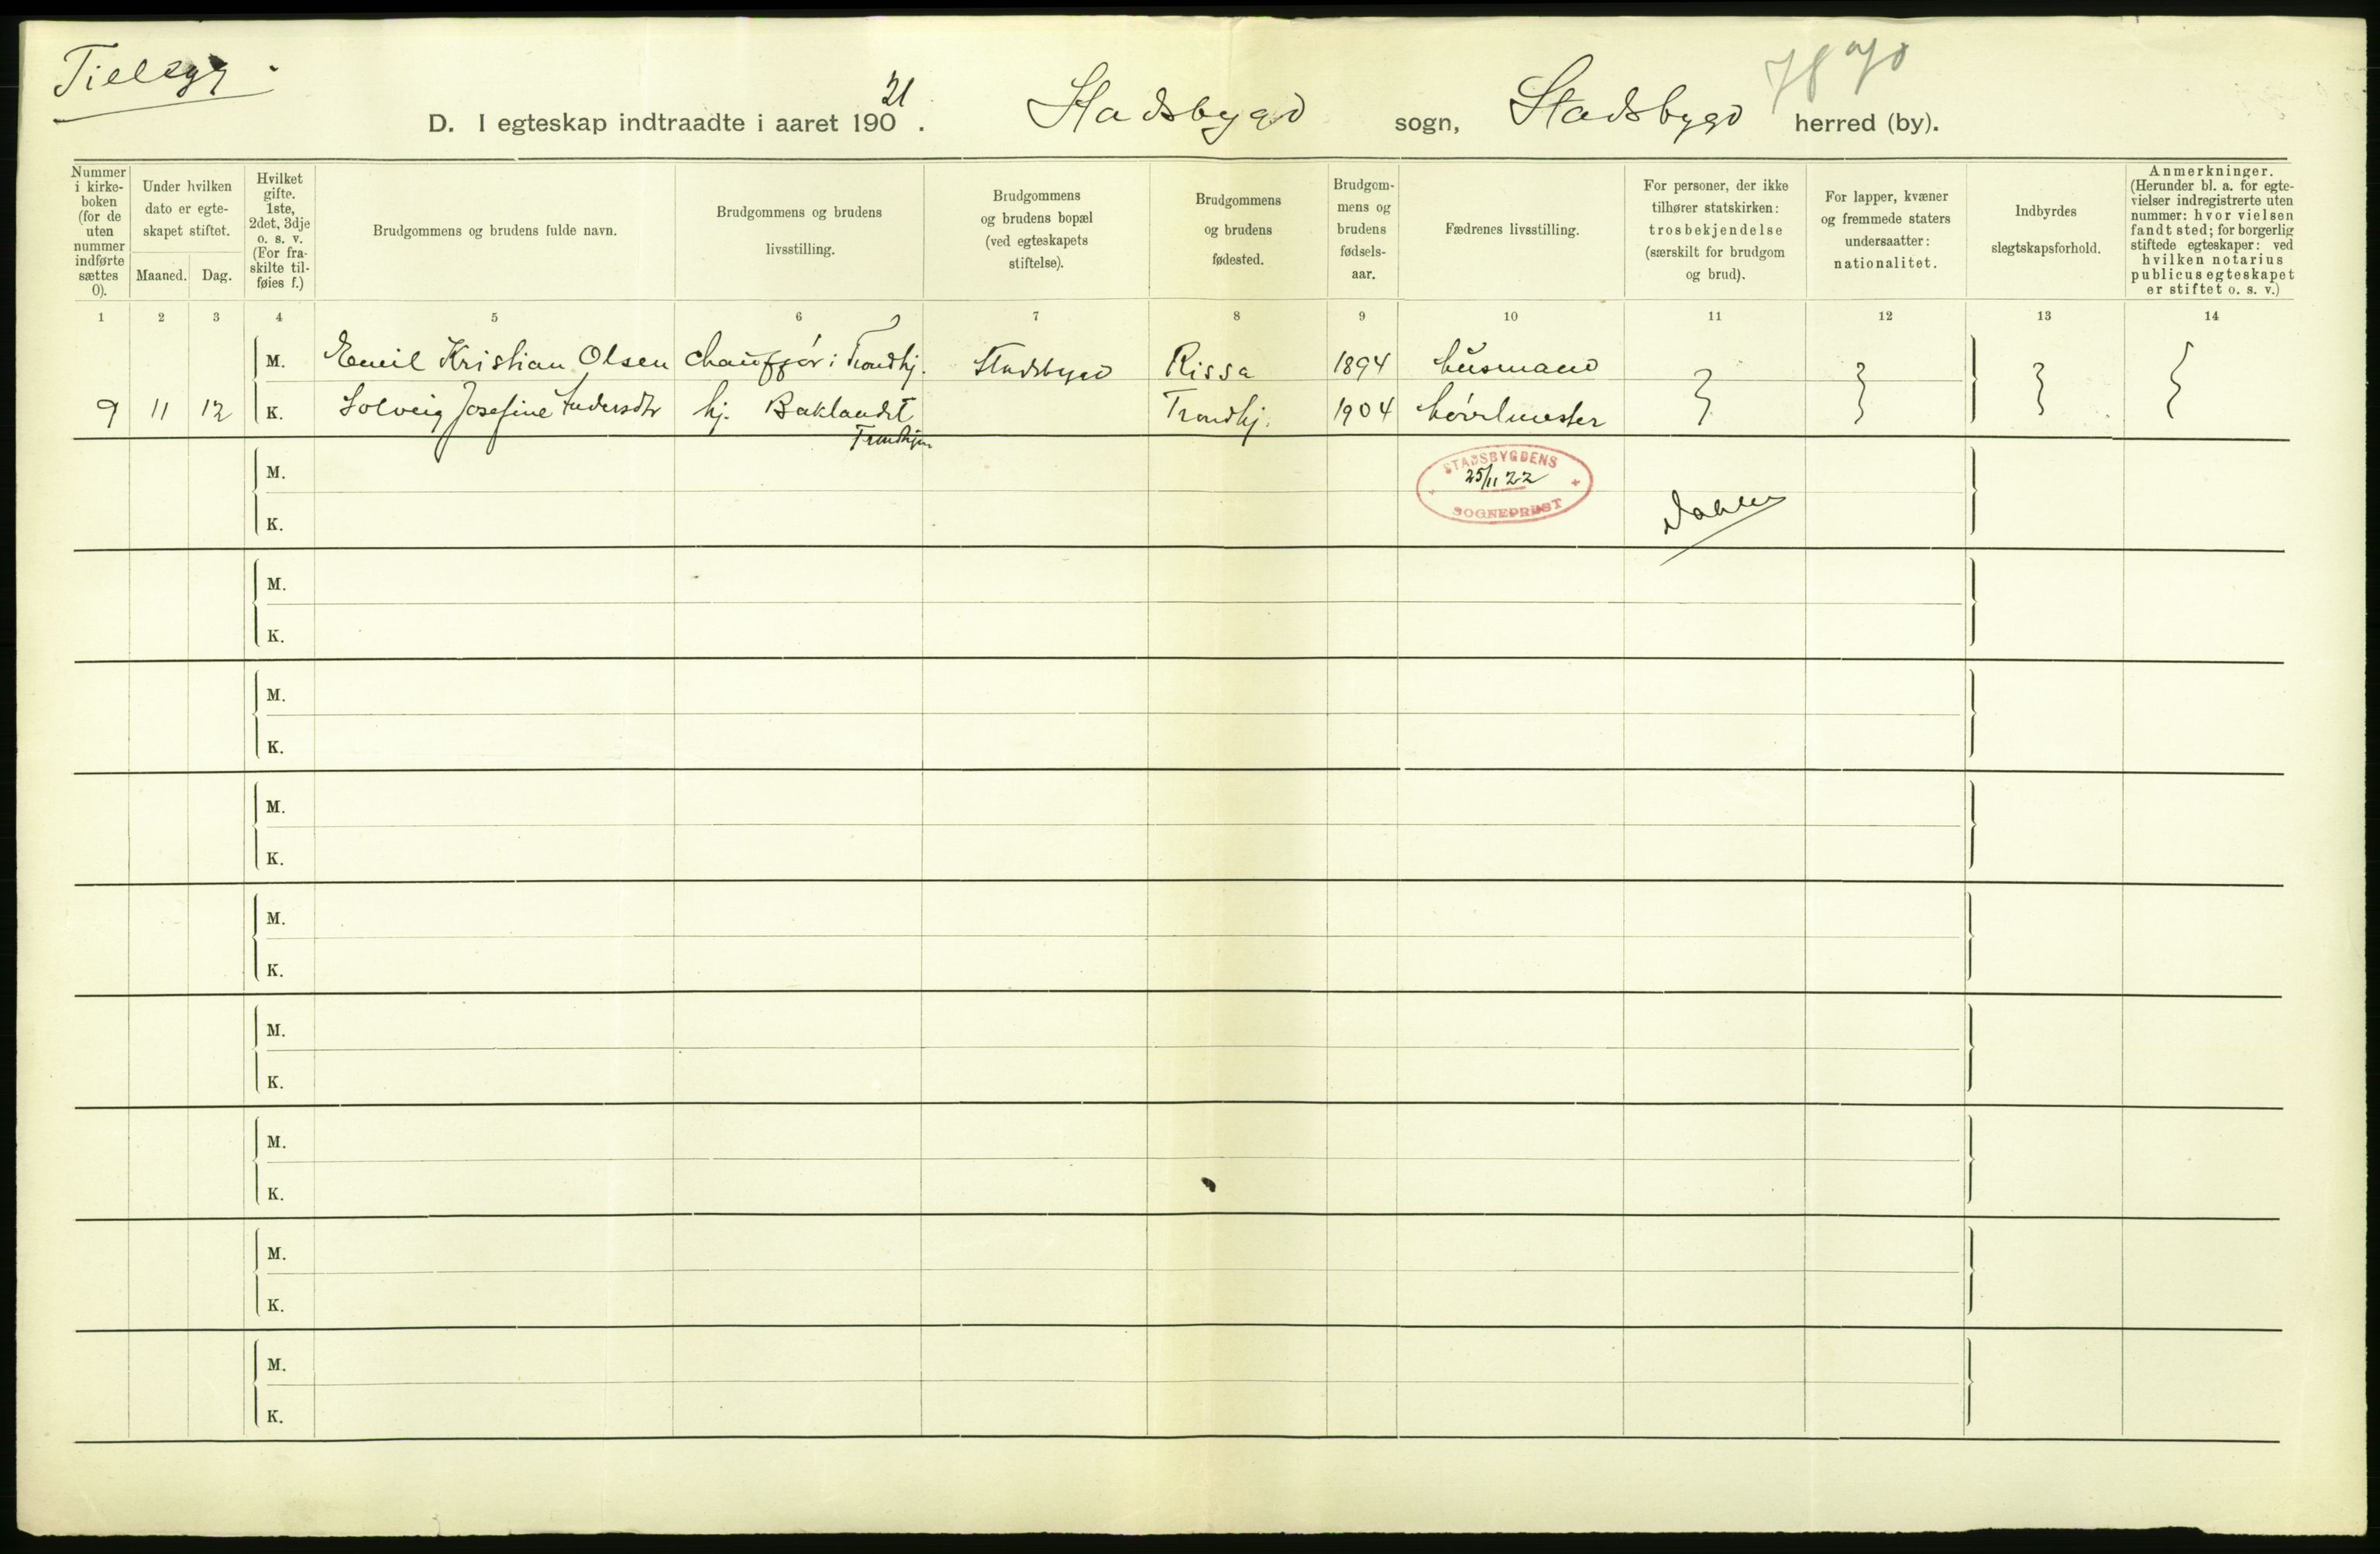 Tillegg.
D. I egteskap indtraadte i aaret 190 21. Stadsbygd sogn, Stadsbygd herred (by).
Nummer i kirke-boken (for de uten nummer indførte sættes 0).
Under hvilken dato er egte-skapet stiftet.
Maaned. Dag.
Hvilket gifte. 1ste, 2det, 3dje o. s. v. (For fra-skilte til-føies f.)
Brudgommens og brudens fulde navn.
Brudgommens og brudens livsstilling.
Brudgommens og brudens bopæl (ved egteskapets stiftelse).
Brudgommens og brudens fødested.
Brudgom-mens og brudens fødsels-aar.
Fædrenes livsstilling.
For personer, der ikke tilhører statskirken: trosbekjendelse (særskilt for brudgom og brud).
For lapper, kvæner og fremmede staters undersaatter: nationalitet.
Indbyrdes slegtskapsforhold.
Anmerkninger. (Herunder bl. a. for egte-vielser indregistrerte uten nummer: hvor vielsen fandt sted; for borgerlig stiftede egteskaper: ved hvilken notarius publicus egteskapet er stiftet o. s. v.)
1 2 3 4 5 6 7 8 9 10 11 12 13 14
M. Emil Kristian Olsen chauffør i Trondhj. Stadsbygd Rissa 1894 husmand
9 11 12 K. Solveig Josefine Andersdtr hj. Baklandet Trondhj. 1904 hövelmester
Trondhjem
M.
STADSBYGDENS
25/11 22
SOGNEPREST
K.
M.
K.
M.
K.
M.
K.
M.
K.
M.
K.
M.
K.
M.
K.
M.
K.